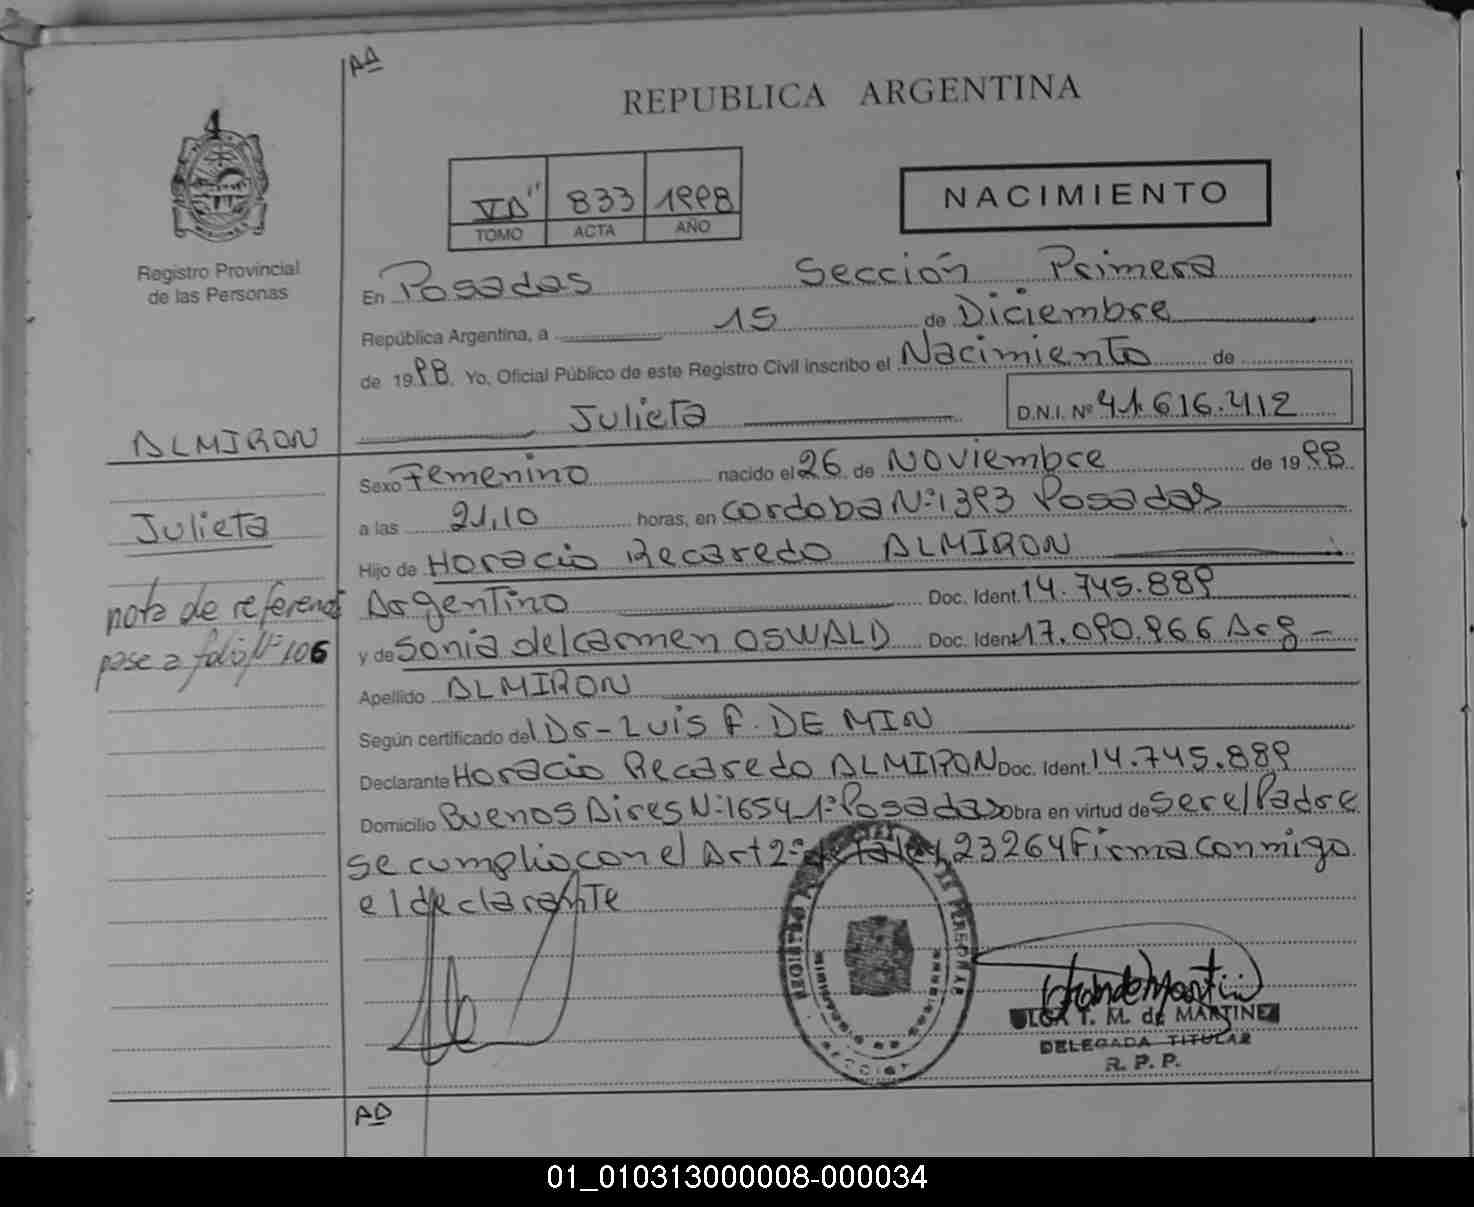 AA
REPUBLICA ARGENTINA
4
VI D" 833 1998
TOMO ACTA AÑO
NACIMIENTO
Registro Provincial
de las Personas
En Posadas Sección Primera
República Argentina, a 15 de Diciembre
de 1998. Yo, Oficial Público de este Registro Civil inscribo el Nacimiento de
Julieta D.N.I. Nº 41.616.412
ALMIRON
Sexo Femenino nacido el 26 de Noviembre de 1998
Julieta
a las 21,10 horas, en Cordoba Nº:1393 Posadas
Hijo de Horacio Recaredo ALMIRON
nota de referencia
Argentino Doc. Ident. 14.745.889
pase a folio Nº 106
y de Sonia del Carmen OSWALD Doc. Ident 17.090.966 Arg -
Apellido ALMIRON
Según certificado del Dr - Luis F. DE MIN
Declarante Horacio Recaredo ALMIRON Doc. Ident. 14.745.889
Domicilio Buenos Aires Nº:1654 1º Posadas Obra en virtud de ser el Padre
se cumplio con el Art 2º de la ley 23264 Firma Conmigo
el declarante
OLGA T. M. de MARTINEZ
DELEGADA TITULAR
R. P. P.
AD
01_010313000008-000034